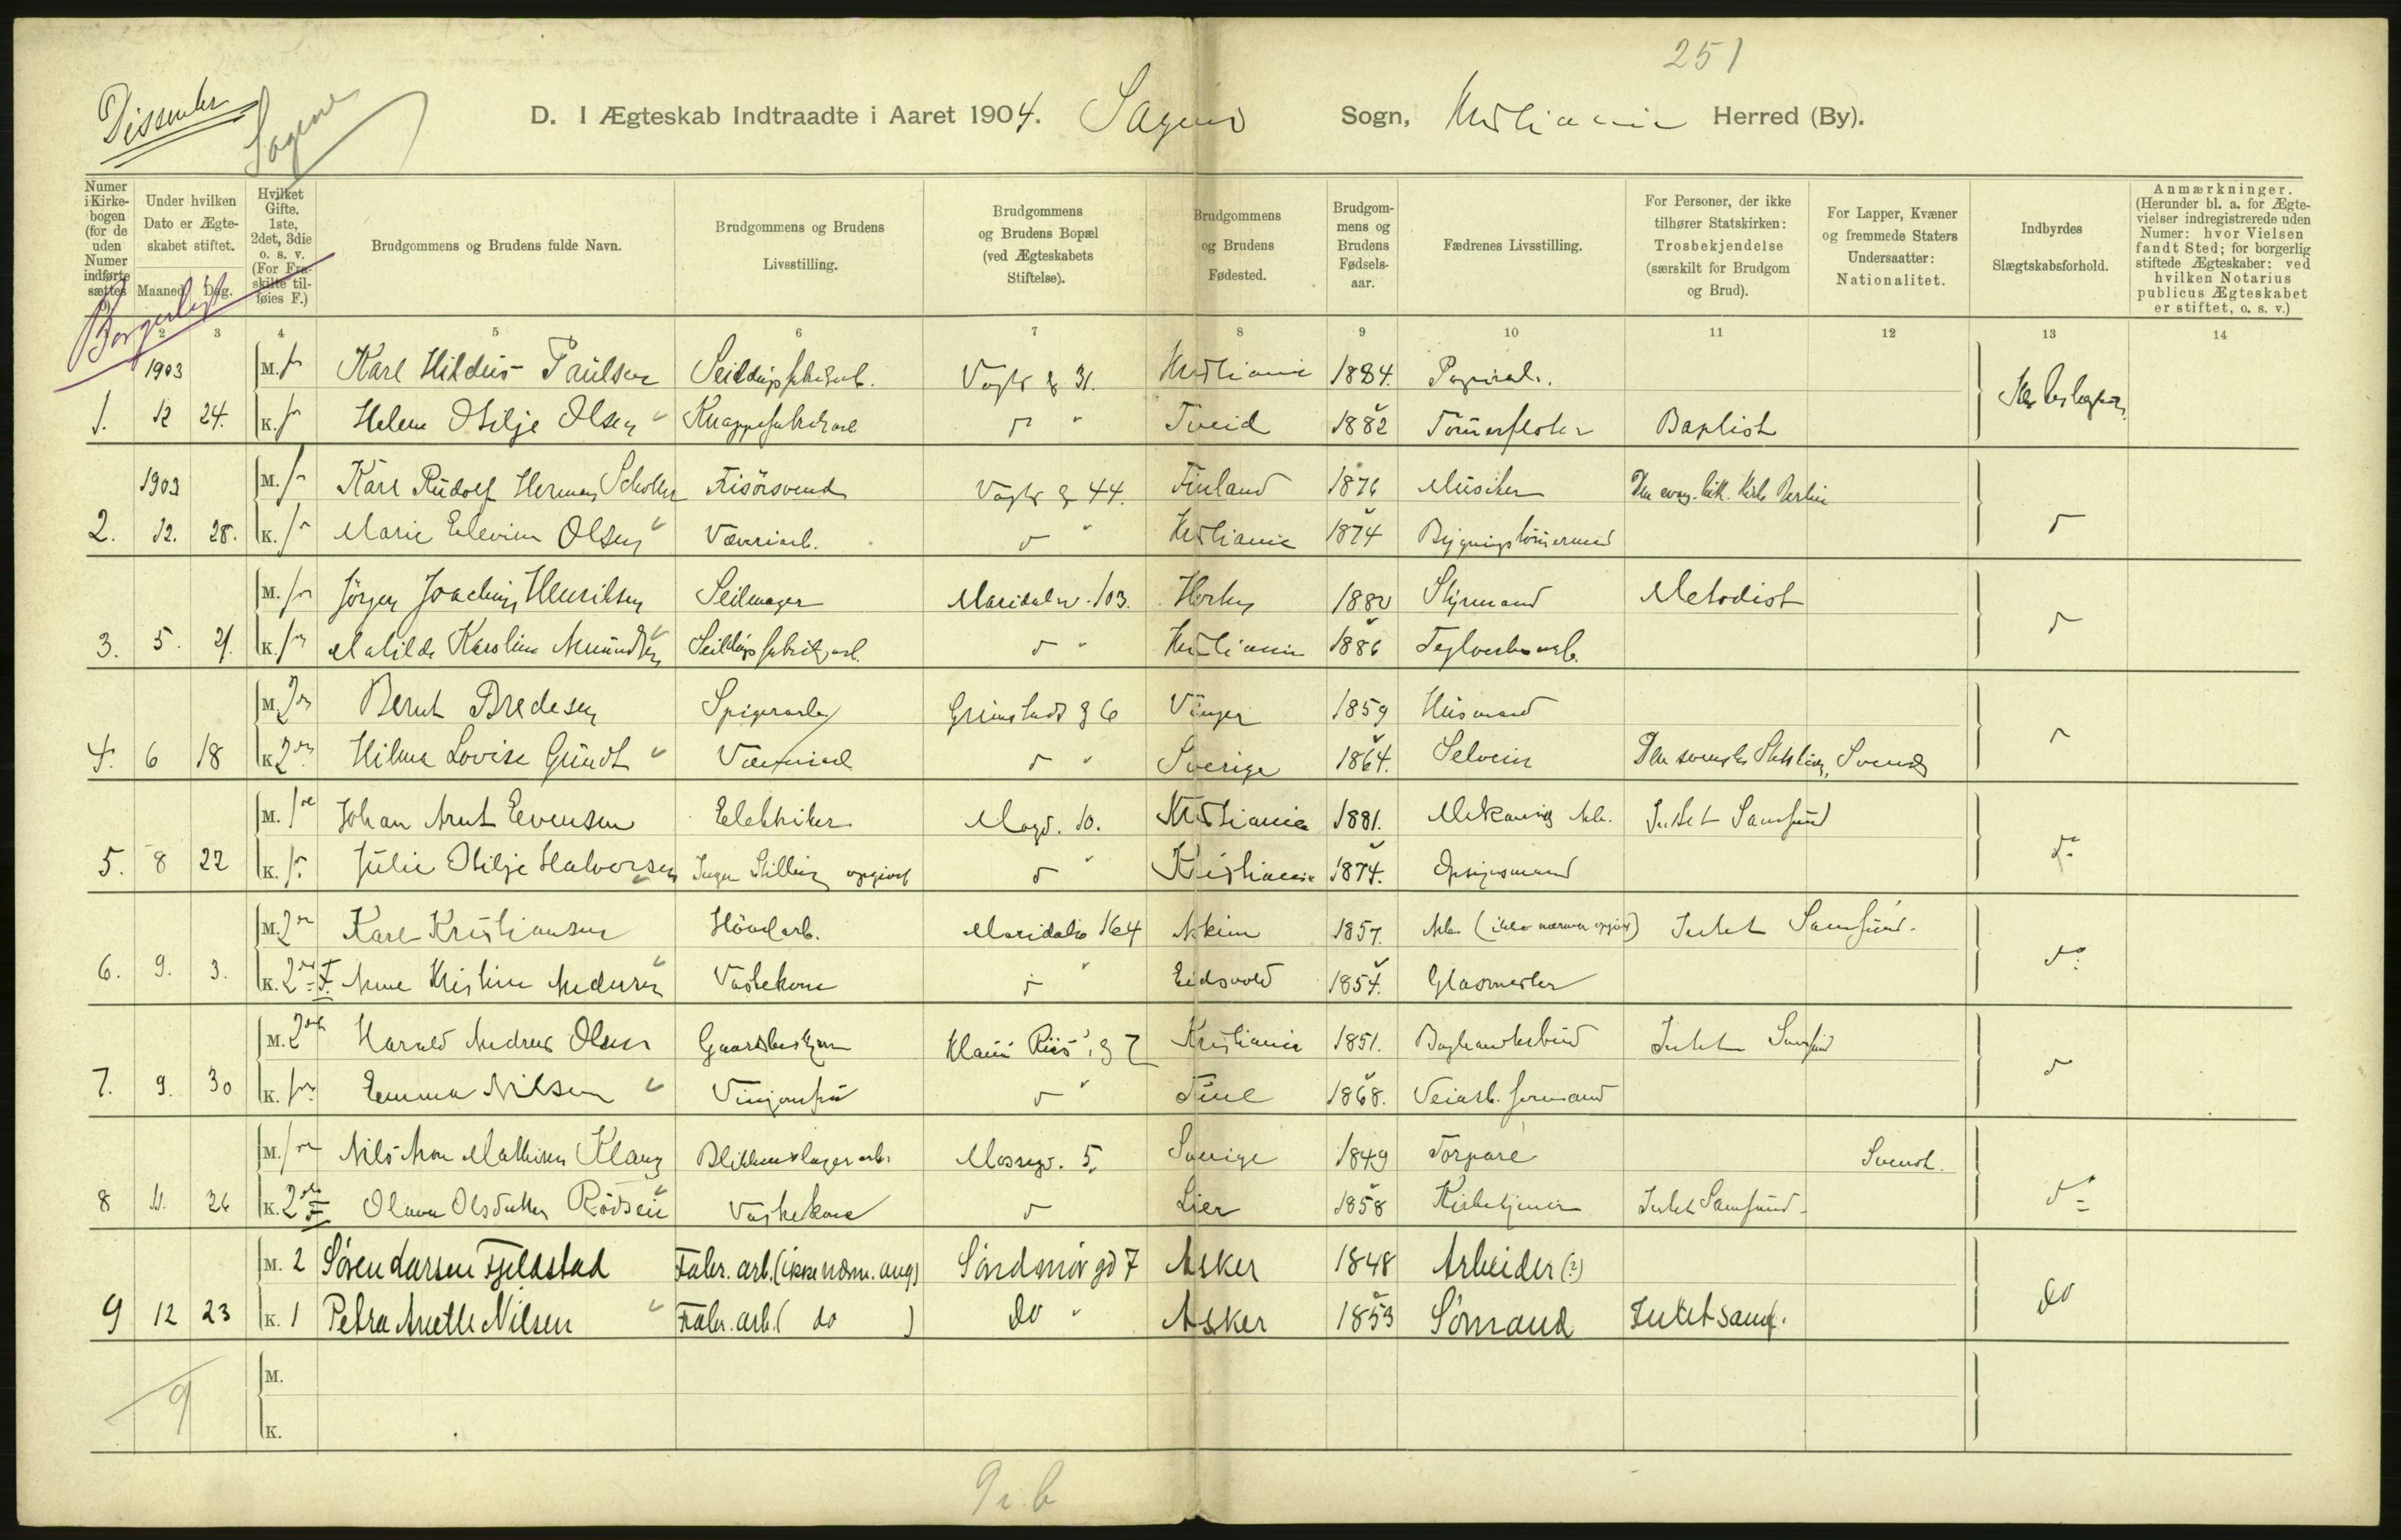 251
Dissenter
Sagene
D. I Ægteskab Indtraadte i Aaret 1904. Sagene Sogn, Kristiania Herred (By).
Numer i Kirkebogen (for de uden Numer indførte sættes
Under hvilken Dato er Ægteskabet stiftet.
Maaned. Dag.
Hvilket Gifte. 1ste, 2det, 3die o. s. v. (For Fraskilte tilføies F.)
Brudgommens og Brudens fulde Navn.
Brudgommens og Brudens Livsstilling.
Brudgommens og Brudens Bopæl (ved Ægteskabets Stiftelse).
Brudgommens og Brudens Fødested.
Brudgommens og Brudens Fødselsaar.
Fædrenes Livsstilling.
For Personer, der ikke tilhører Statskirken: Trosbekjendelse (særskilt for Brudgom og Brud).
For Lapper, Kvæner og fremmede Staters Undersaatter: Nationalitet.
Indbyrdes Slægtskabsforhold.
Anmærkninger. (Herunder bl. a. for Ægtevielser indregistrerede uden Numer: hvor Vielsen fandt Sted; for borgerlig stiftede Ægteskaber: ved hvilken Notarius publicus Ægteskabet er stiftet, o. s. v.)
Borgerligt
2 3 4 5 6 7 8 9 10 11 12 13 14
1903 M. Karl Hildus Paulsen Seildugsfabrikarb. Vogts g. 31. Kristiania 1884. Papirarb.
1. 12 24. K. Helene Otilje Olsen Knappefabrikarb. Tveid 1882 Tømmerfløter Baptist
1903 M. Karl Rudolf Herman Scholler Frisørsvend Vogts g 44. Finland 1876 Musiker Den evang. luth. Kirke Berlin
2. 12. 28. K. Marie Elevine Olsen Væveriarb. Kristiania 1874 Bygningstømmermand
M. Jörgen Joachim Henriksen Seilmager Maridalsv. 103. Horten 1880 Styrmand Metodist
3. 5. 21. K. Matilde Karoline Amundsen Seildugsfabrikarb. Kristiania 1886 Teglverksarb.
M. 2 Bernt Bredesen Spigerarb. Grimstads g 6 Vinger 1859 Husmand
4. 6 18 K. 2 Hilma Lovise Gundt Væveriarb. Sverige 1864. Selveier Den svenske Svensk
M. 1 Johan Arnt Evensen Elektriker Kristiania 1881. Mekanisk Arb. Intet Samfund
5. 8 22 K. 1 Julie Otilje Halvorsen Ingen Stilling opgivet Kristiania 1874. Opsynsmand
M. 2 Karl Kristiansen Høvlarb. Maridalsv 164 Askim 1857. Arb. (ikke nærmere opgivet) Intet Samfund.
6. 9. 3. K. 2 F. Anne Kristine Andersen Vaskekone Eidsvold 1854. Glasmester
M. 2 Harald Andreas Olsen Gaardbestyrer Klaus Riis' g 7 Kristiania 1851. Boghandlerbud Intet Samfund
7. 9. 30 K. 1 Emma Nilsen 1868. Veiarb. formand
M. 1 Nils Aron Mathisen Klang Blikkenslagerarb. Mosseg. 5. Sverige 1849 Torpare Svensk.
8 11. 26 K. 2 F. Olava Olsdatter Rødseie Vaskekone Lier 1858 Kirketjener Intet Samfund
M. 2 Søren Larsen Fjeldstad Fabr. arb. (ikke nærm. ang) Søndmør gd 7 Asker 1848 Arbeider (?)
9 12 23 K. 1 Petra Anette Nilsen Fabr. arb. ( do ) do Asker 1853 Sømand Intet samf. do
M.
9
K.